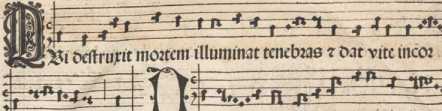 QVi destruxit mortem illuminat tenebras ⁊ dat vite incor